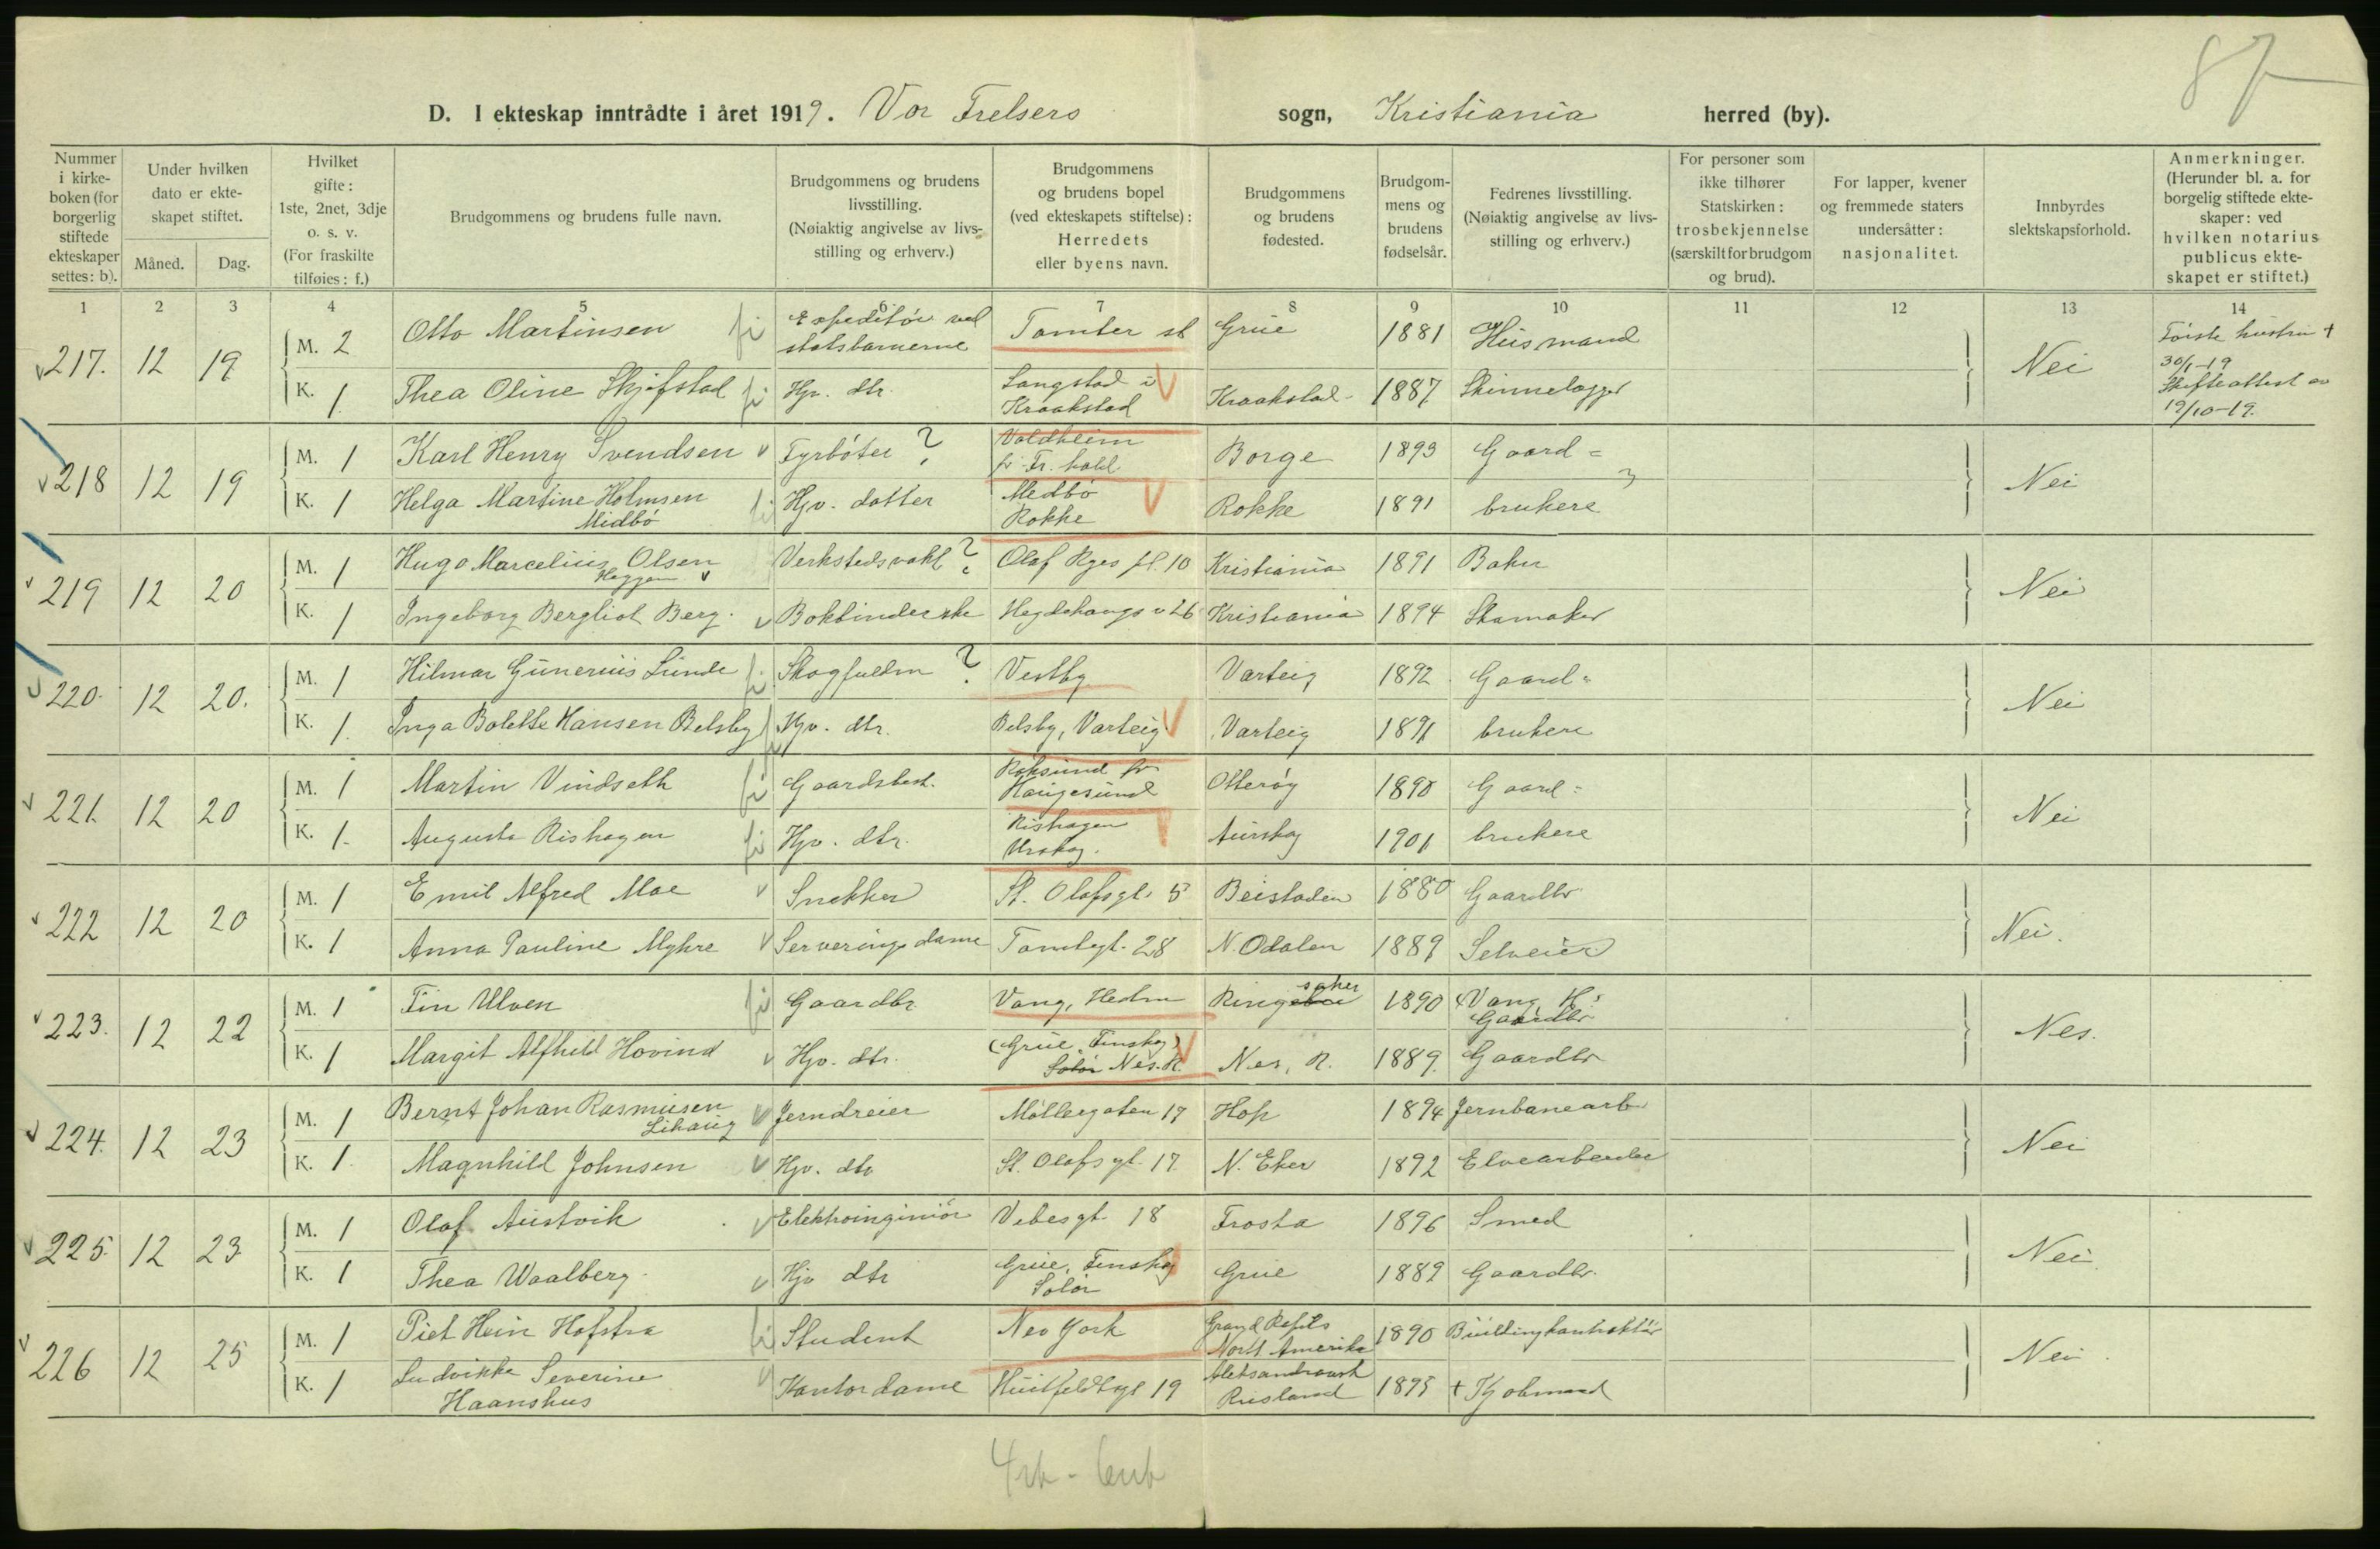 87
D. I ekteskap inntrådte i året 1919. Vor Frelsers sogn, Kristiania herred (by).
Nummer i kirkeboken (for borgerlig stiftede ekteskaper settes: b).
Under hvilken dato er ekteskapet stiftet.
Måned. Dag.
Hvilket gifte: 1ste, 2net, 3dje o. s. v. (For fraskilte tilføies: f.)
Brudgommens og brudens fulle navn.
Brudgommens og brudens livsstilling. (Nøiaktig angivelse av livsstilling og erhverv.)
Brudgommens og brudens bopel (ved ekteskapets stiftelse): Herredets eller byens navn.
Brudgommens og brudens fødested.
Brudgommens og brudens fødselsår.
Fedrenes livsstilling. (Nøiaktig angivelse av livsstilling og erhverv.)
For personer som ikke tilhører Statskirken: trosbekjennelse (særskilt for brudgom og brud).
For lapper, kvener og fremmede staters undersåtter: nasjonalitet.
Innbyrdes slektskapsforhold.
Anmerkninger. (Herunder bl. a. for borgerlig stiftede ekteskaper: ved hvilken notarius publicus ekteskapet er stiftet.)
1 2 3 4 5 6 7 8 9 10 11 12 13 14
217. 12 19 M. 2 Otto Martinsen Expeditör ved statsbanerne Tomter st Grue 1881 Husmand Nei Förste hustru + 30/1-19 Skifteattest av 19/10-19.
K. 1 Thea Oline Skjefstad Hjv. dtr. Langstad i Kraakstad Kraakstad 1887 Skinnelægger
218 12 19 M. 1 Karl Henry Svendsen Fyrböter ? Valdheim pr. Fr. hald Borge 1893 Gaard= Nei
K. 1 Helga Martine Holmsen Midbö Hjv. datter Medbö Rokke Rokke 1891 brukere
219 12 20 M. 1 Hugo Marcelius Olsen Haggen Verkstedsvakt ? Olaf Ryes pl. 10 Kristiania 1891 Baker Nei
K. 1 Ingeborg Bergliot Berg. Bokbinderske Hegdehaugs v 26 Kristiania 1894 Skomaker
220. 12 20. M. 1 Hilmar Gunerius Lunde Skogfuldm ? Vestby Varteig 1892 Gaard= Nei
K. 1. Inga Bolette Hansen Belsby Hjv. dtr. Belsby, Varteig Varteig 1891 brukere
221. 12 20 M. 1 Martin Vindseth Gaardsbest. Röksund pr Haugesund Otteröy 1890 Gaard= Nei
K. 1. Augusta Rishagen Hjv. dtr. Rishagen Urskog. Aurskog 1901 brukere
222 12 20 M. 1 Emil Alfred Moe Snekker St. Olafsgt. 5 Beistaden 1880 Gaardbr Nei.
K. 1 Anna Pauline Myhre Serveringsdame Tomtegt. 28 N. Odalen 1889 Selveier
223. 12 22 M. 1 Fin Ulven Gaardbr Vang, Hedm Ringebu saker 1890 Vang H. Gaardbr Nes.
K. 1 Margit Alfhild Hovind Hjv. dtr. (Grue, Finskog) Solör Nes. R. Nes, R. 1889. Gaardbr
224. 12 23 M. 1 Bernt Johan Rasmusen Lihaug Jerndreier Möllergaten 17 Hop 1894 Jernbanearb Nei
K. 1. Magnhild Johnsen Hjv. dtr St. Olafsgt. 17 N. Eker 1892 Elvearbeider
225. 12 23. M. 1 Olaf Austvik Elektroinginiör Vibesgt. 18 Frosta 1896 Smed Nei.
K. 1 Thea Waalberg. Hjv dtr Grue, Finskog Solör Grue 1889 Gaardbr.
226 12 25 M. 1 Piet Hein Hofstra Student New York Grand Rapids Nord Amerika 1890 Buildingkontraktör Nei.
K. 1 Ludvikka Severine Haanshus Kontordame Huitfeldtsgt 19 Aleksandrovsk Rusland 1895 + Kjobmand